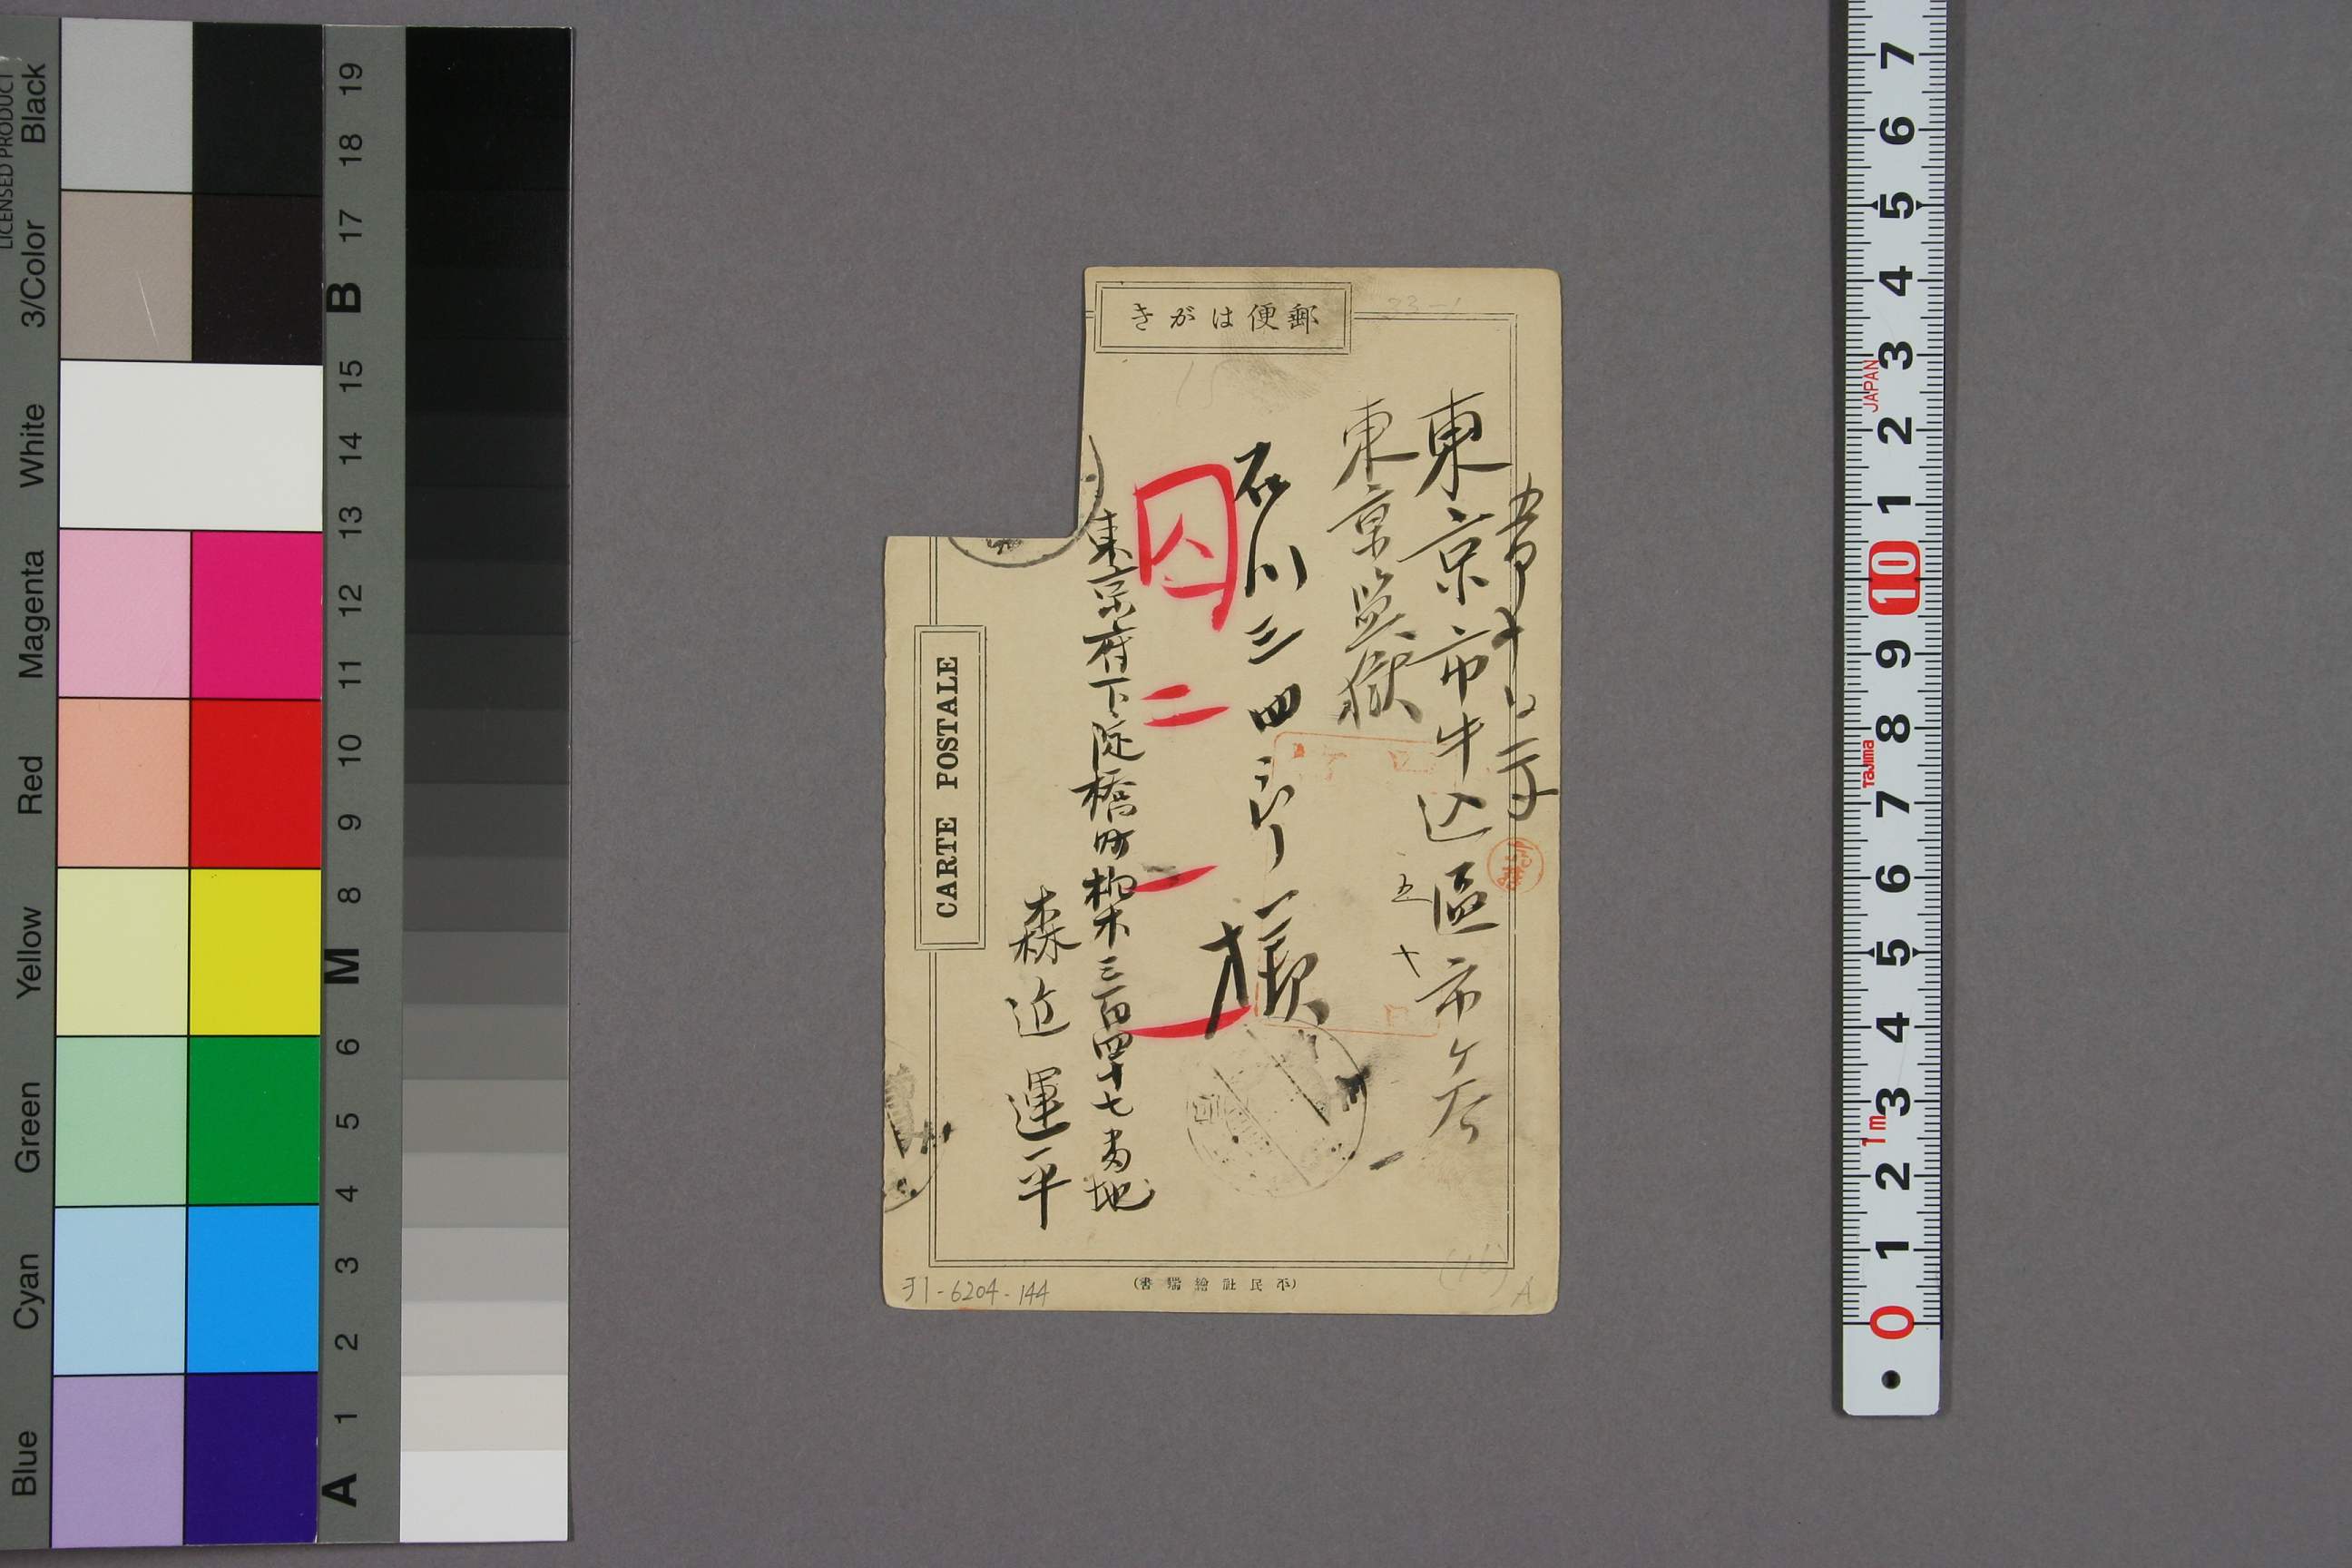 郵便はがき
東京市牛込區市ケ谷
東京監獄
石川三四郎様
囚 二 一
東京府下淀橋町柏木三百四十七番地
森近運平
五
十
CARTE POSTALE
(平民社繪端書)
ヲ1-6204-144
(16)
A
23-1
15
LICENSED PRODUCT
Black
3/Color
White
Magenta
Red
Yellow
Green
Cyan
Blue
19
18
17
B
15
14
13
12
11
10
9
8
M
6
5
4
3
2
1
A
7
6
5
4
3
JAPAN
2
1
10
9
8
Tajima
7
6
5
4
3
1m
2
1
0